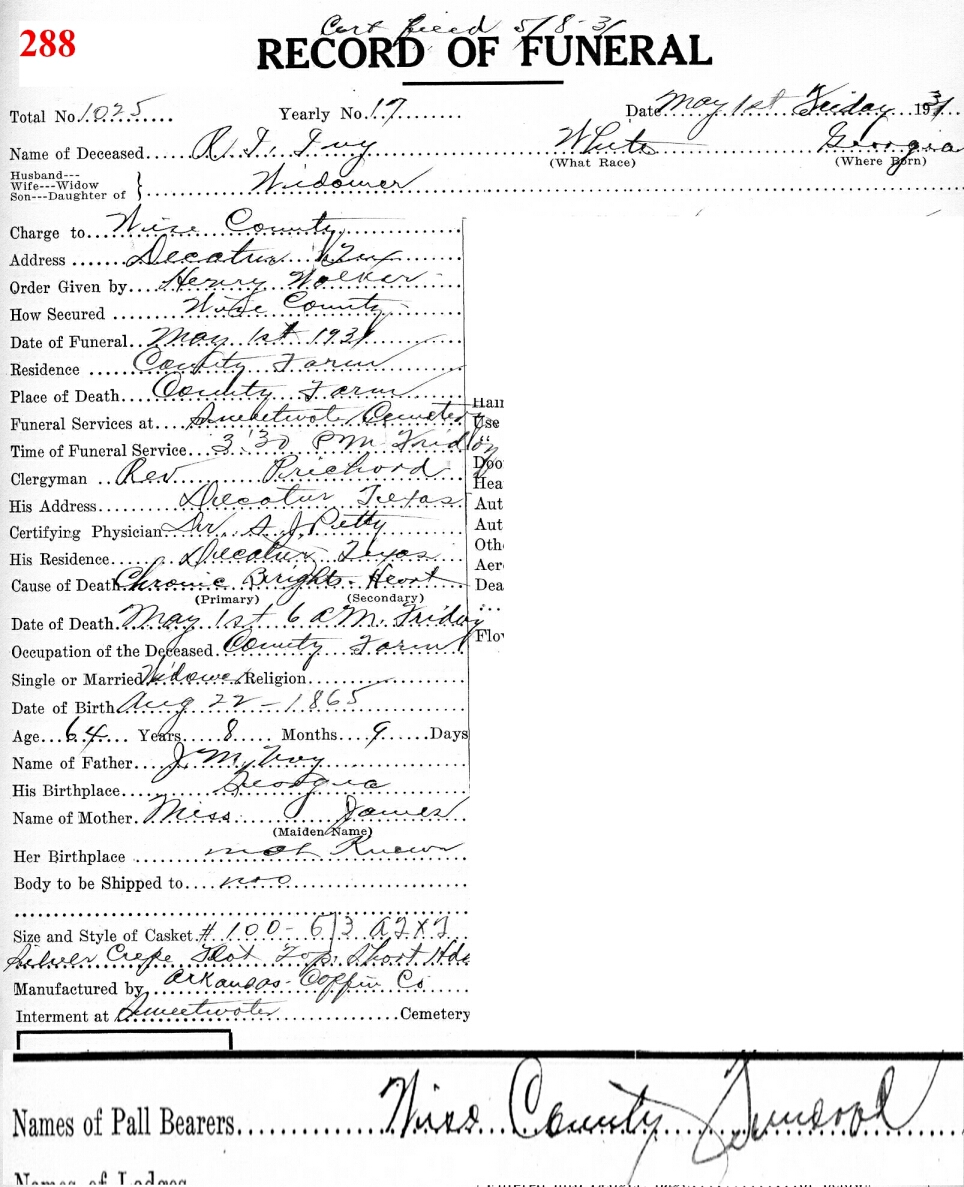 288
Cert filed 5/8-31
RECORD OF FUNERAL
Total No. 1025 Yearly No. 17 Date May 1st Friday 1931
Name of Deceased R. T. Ivy White Georgia
(What Race) (Where Born)
Husband---
Wife---Widow
Son---Daughter of } Widower
Charge to Wise County
Address Decatur Tex
Order Given by Henry Walker
How Secured Wise County
Date of Funeral May 1st 1931
Residence County Farm
Place of Death County Farm
Funeral Services at Sweetwater Cemetery
Time of Funeral Service 3:30 PM Friday
Clergyman Rev Prichard
His Address Decatur Texas
Certifying Physician Dr. S. J. Petty
His Residence Decatur Texas
Cause of Death Chronic Brights - Heart
(Primary) (Secondary)
Date of Death May 1st 6 A.M. Friday
Occupation of the Deceased County Farm
Single or Married Widower Religion
Date of Birth Aug 22 - 1865
Age 64 Years 8 Months 9 Days
Name of Father J. M. Ivy
His Birthplace Georgia
Name of Mother Miss James
(Maiden Name)
Her Birthplace not Known
Body to be Shipped to no
Size and Style of Casket # 100 - 6/3
Silver Crepe Flat Top Short Hds
Manufactured by Arkansas Coffin Co
Interment at Sweetwater Cemetery
Han
Use
Doo
Hea
Aut
Aut
Oth
Aer
Dea
Flo
Names of Pall Bearers Wise County
Names of Lodges